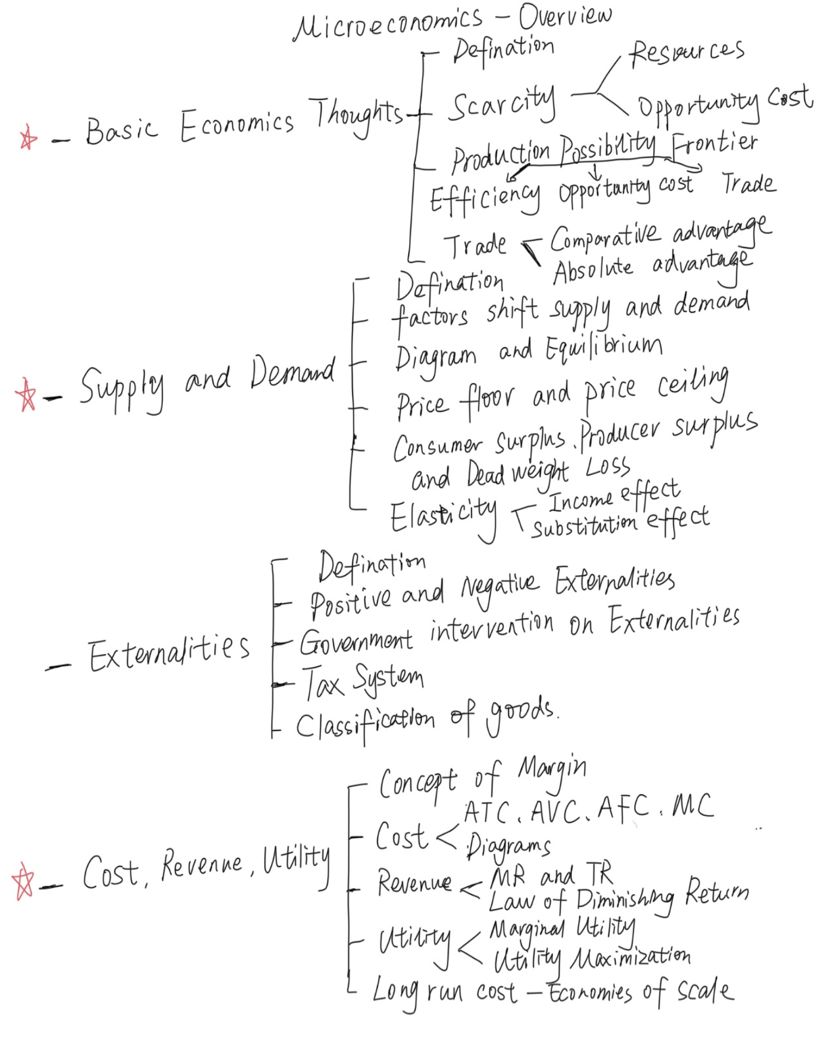 Microeconomics - Overview
Defination
Resources
Scarcity
Opportunity Cost
- Basic Economics Thoughts
Production Possibility Frontier
Efficiency opportunity cost Trade
Trade
Comparative advantage
Absolute advantage
Defination
factors shift supply and demand
Diagram and Equilibrium
- Supply and Demand
Price floor and price ceiling
Consumer surplus. Producer surplus
and Deadweight Loss
Elasticity
Income effect
Substitution effect
Defination
Positive and Negative Externalities
Government intervention on Externalities
- Externalities
Tax System
Classification of goods.
Concept of Margin
Cost
ATC. AVC. AFC. MC
Diagrams
- Cost, Revenue, Utility
Revenue
MR and TR
Law of Diminishing Return
Utility
Marginal Utility
Utility Maximization
Long run cost - Economies of scale